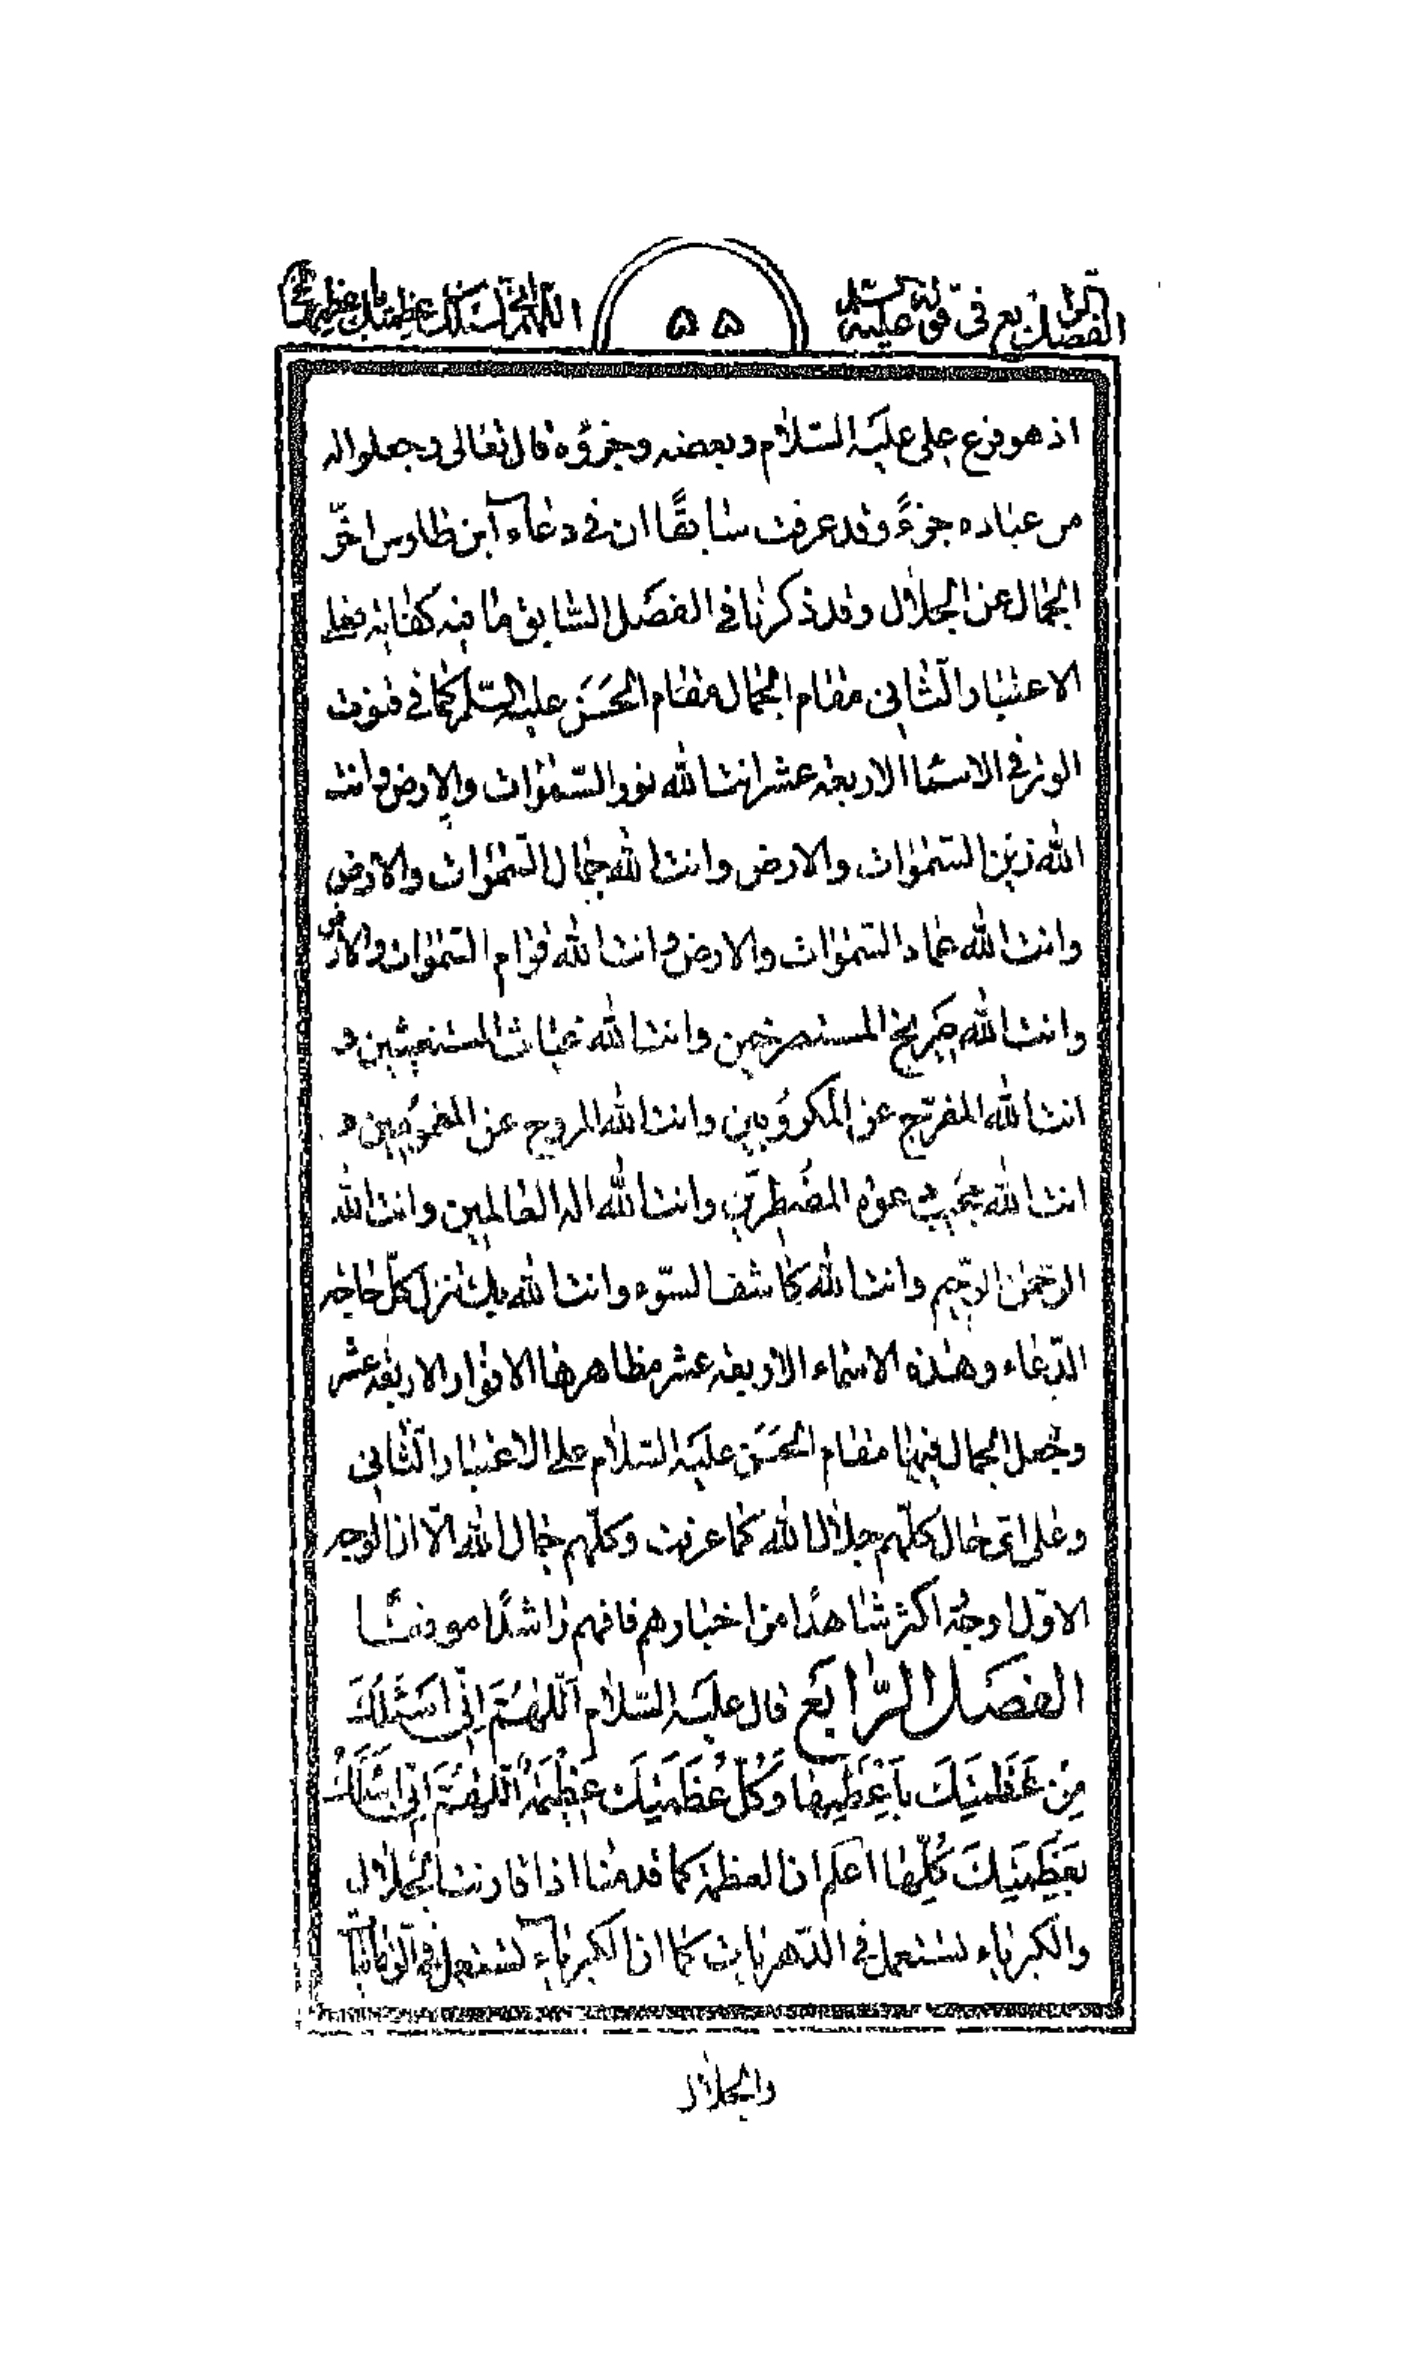 الفصل الرابع في قوله عليه السلم
٥٥
اللهم اني اسئلك من عظمتك باعظمها
اذ هو فرع علي عليه السّلام و بعضه و جزؤه قال تعالى و جعلوا له
من عباده جزءً و قد عرفت سابقًا ان في دعاء ابن طاوس اخّر
الجمال عن الجلال و قد ذكرنا في الفصل السّابق ما فيه كفاية فعلى
الاعتبار الثّاني مقام الجمال مقام الحَسَن عليه السّلم كما في قنوت
الوتر في الاسما الاربعة عشر انت الله نور السّموات و الارض و انت
الله زين السّموات و الارض و انت الله جمال السّموات و الارض
و انت الله عماد السّموات و الارض و انت الله قوام السّموات و الارض
و انت الله صَريخ المستصرخين و انت الله غياث المستغيثين و
انت الله المفرّج عن المكروُبين و انت الله المروح عن المغموُمين و
انت الله مجُيب دعوة المضُطرّين و انت الله اله العالمين و انت الله
الرّحمن الرّحيم و انت الله كاشف السّوء و انت الله بك تنزل كلّ حاجة
الدّعاء و هذه الاسماء الاربعة عشر مظاهرها الانوار الاربعة عشر
و جُعل الجمال فيها مقام الحَسَن عليه السّلام على الاعتبار الثّاني
و على اي حال كلّهم جلال الله كما عرفت و كلّهم جمال الله الّا ان الوجه
الاوّل اوجُه اكثر شاهدًا من اخبارهم فافهم راشدًا موفقًا
الفصَل الرّابَع قال عليه السّلام اَللّهُمَّ اِنّي اَسْئَلُكَ
مِنْ عَظَمَتِكَ بِاَعْظَمِها وَ كُلُّ عَظَمَتِكَ عَظِيمَةٌ اَللّهُمَّ اِنّي اَسْئَلُكَ
بِعَظَمَتِكَ كُلِّها اعلم ان العظمة كما قدمنا اذا قارنت الجلال
و الكبرياء تستعمل في الدّهريات كما ان الكبرياء تستعمل في
والجلال